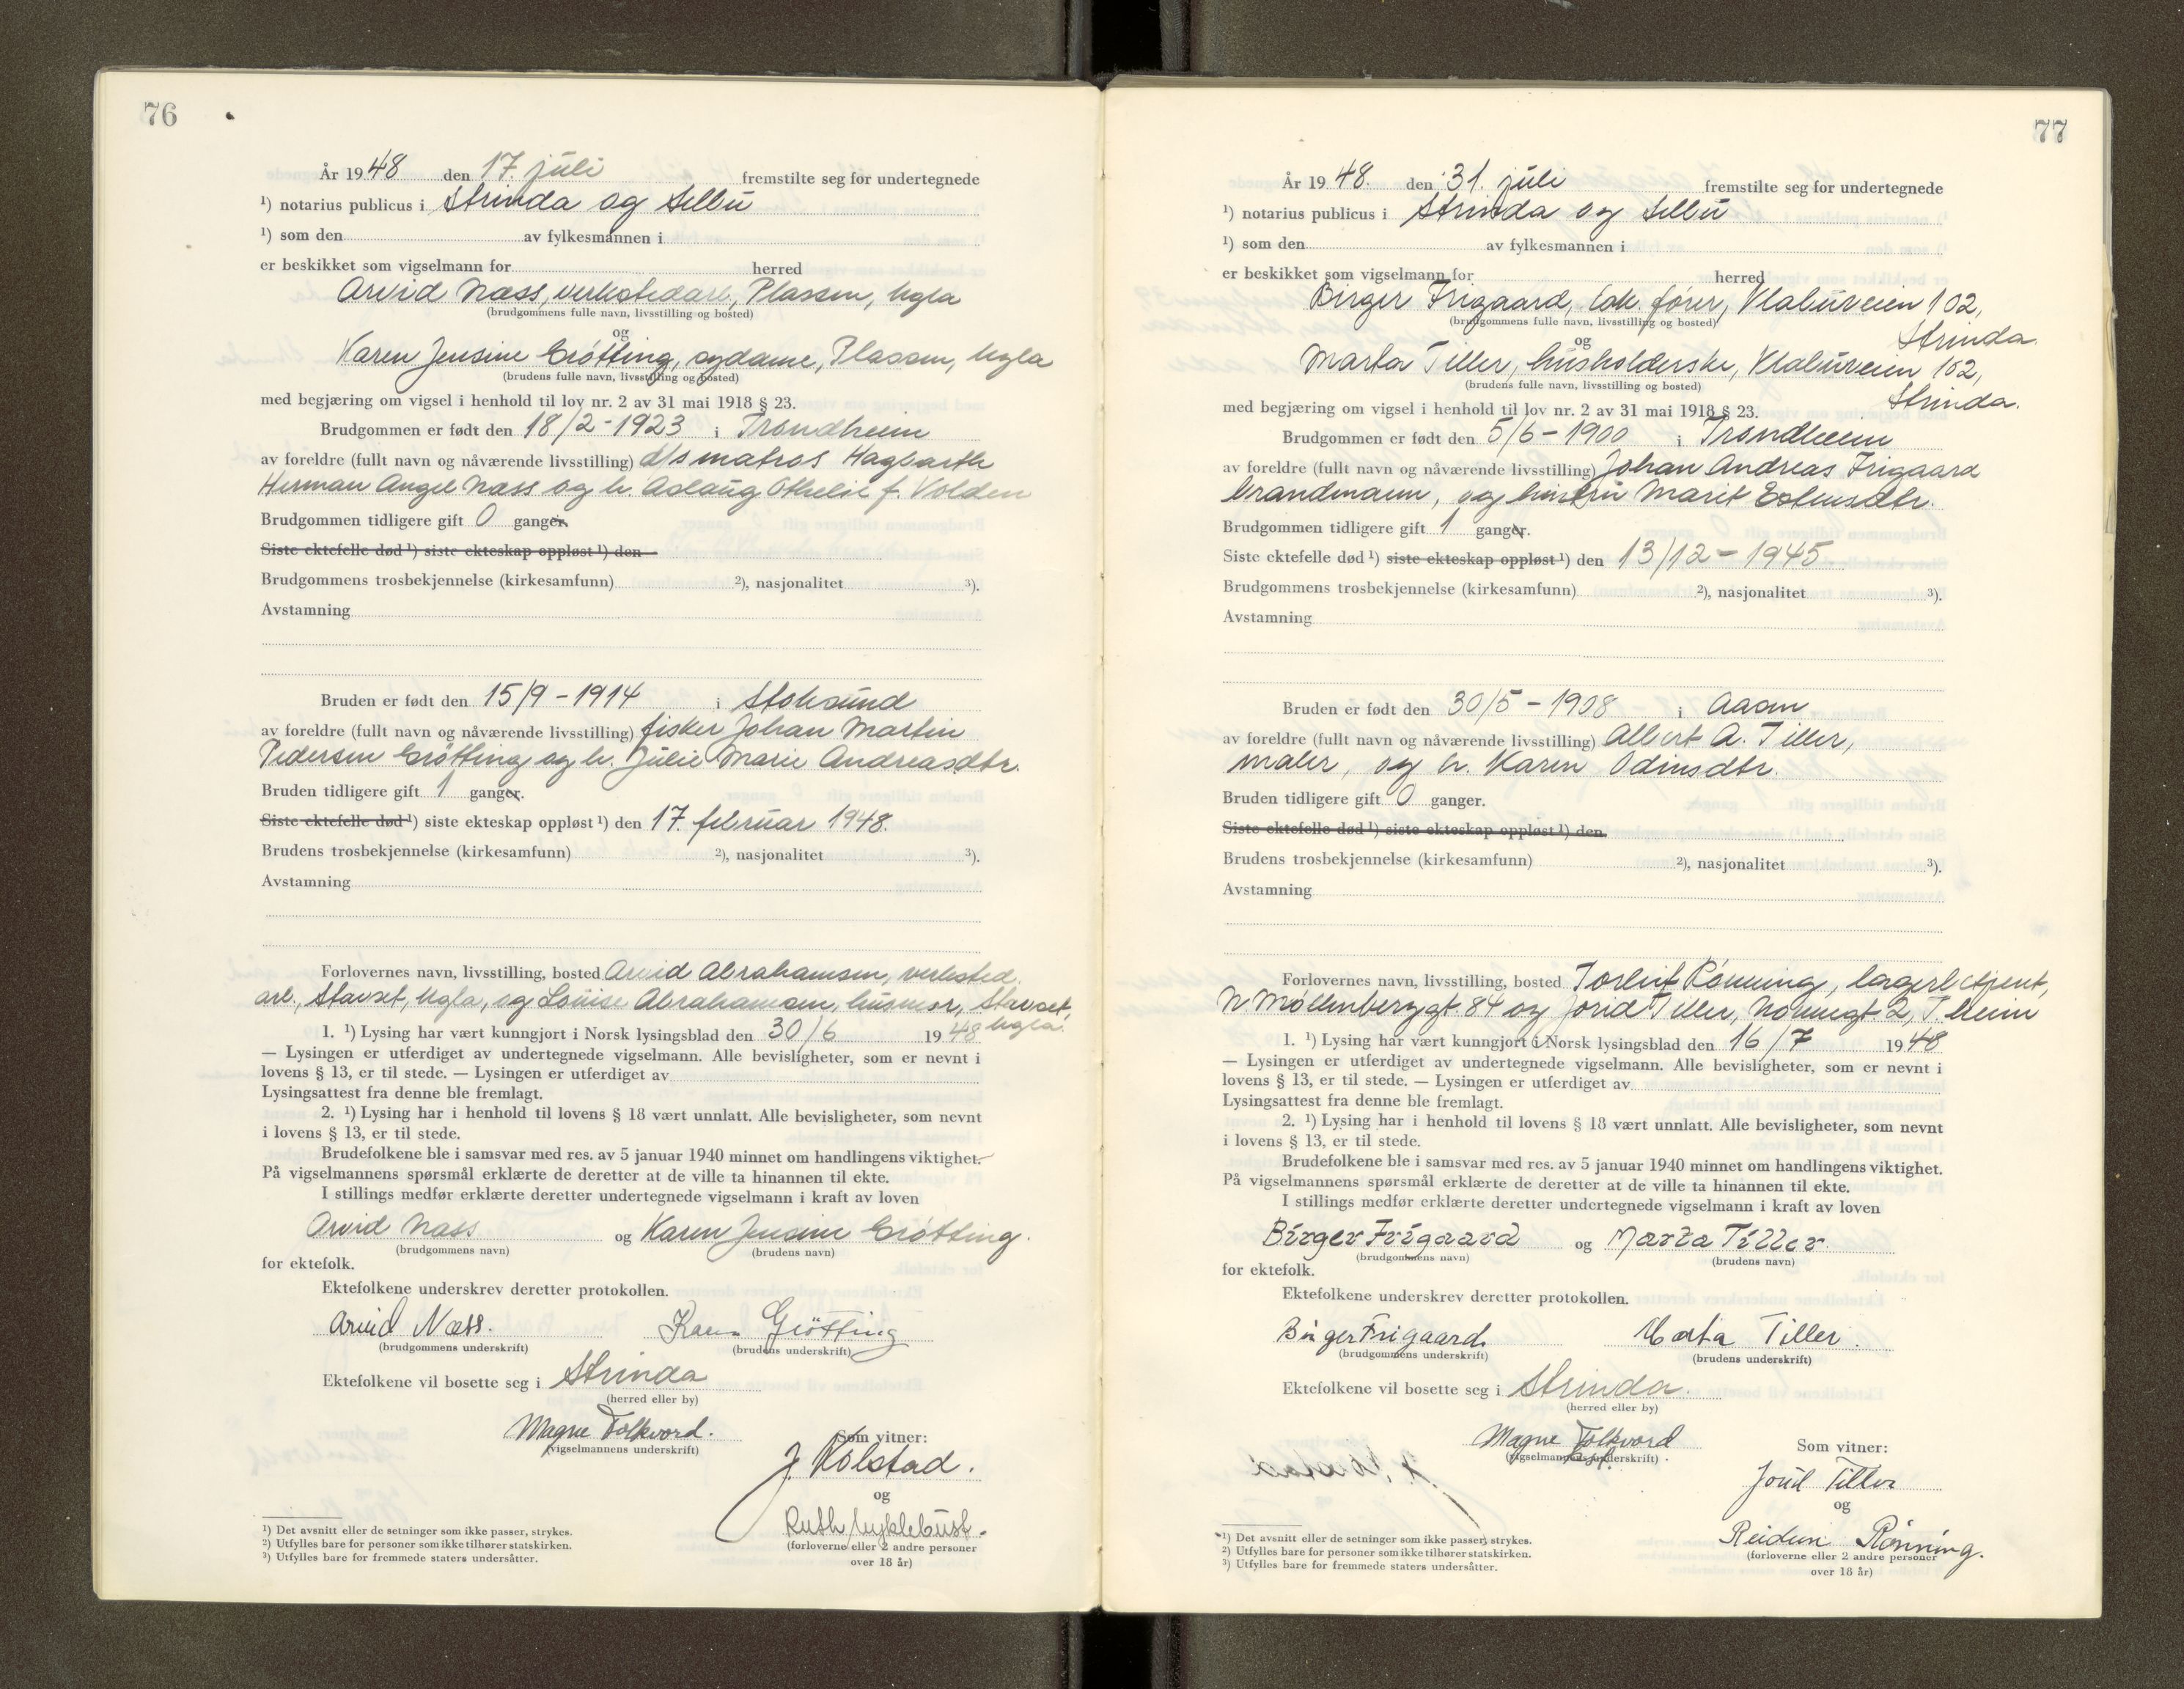 76
År 1948 den 17. juli fremstilte seg for undertegnede
¹) notarius publicus i Strinda og Selbu
¹) som den av fylkesmannen i
er beskikket som vigselmann for herred
Arvid Næss, verkstedarb, Plassen, Ugla
(brudgommens fulle navn, livsstilling og bosted)
og
Karen Jensine Grøtting, sydame, Plassen, Ugla
(brudens fulle navn, livsstilling og bosted)
med begjæring om vigsel i henhold til lov nr. 2 av 31 mai 1918 § 23.
Brudgommen er født den 18/2-1923 i Trondheim
av foreldre (fullt navn og nåværende livsstilling) d/s matros Hagbarth
Herman Angel Næss og h. Aslaug Othelie f. Volden
Brudgommen tidligere gift 0 ganger.
Siste ektefelle død ¹) siste ekteskap oppløst ¹) den
Brudgommens trosbekjennelse (kirkesamfunn) ²), nasjonalitet ³).
Avstamning
Bruden er født den 15/9-1914 i Stoksund
av foreldre (fullt navn og nåværende livsstilling) fisker Johan Martin
Pedersen Grøtting og h. Julie Marie Andreasdtr.
Bruden tidligere gift 1 ganger.
Siste ektefelle død ¹) siste ekteskap oppløst ¹) den 17. februar 1948.
Brudens trosbekjennelse (kirkesamfunn) ²), nasjonalitet ³).
Avstamning
Forlovernes navn, livsstilling, bosted Arvid Abrahamsen, verksted.
arb., Stavset, Ugla, og Louise Abrahamsen, husmor, Stavset,
Ugla.
1. ¹) Lysing har vært kunngjort i Norsk lysingsblad den 30/6 1948
— Lysingen er utferdiget av undertegnede vigselmann. Alle bevisligheter, som er nevnt i
lovens § 13, er til stede. — Lysingen er utferdiget av
Lysingsattest fra denne ble fremlagt.
2. ¹) Lysing har i henhold til lovens § 18 vært unnlatt. Alle bevisligheter, som nevnt
i lovens § 13, er til stede.
Brudefolkene ble i samsvar med res. av 5 januar 1940 minnet om handlingens viktighet.
På vigselmannens spørsmål erklærte de deretter at de ville ta hinannen til ekte.
I stillings medfør erklærte deretter undertegnede vigselmann i kraft av loven
Arvid Næss og Karen Jensine Grøtting.
(brudgommens navn) (brudens navn)
for ektefolk.
Ektefolkene underskrev deretter protokollen.
Arvid Næss. Karen Grötting
(brudgommens underskrift) (brudens underskrift)
Ektefolkene vil bosette seg i Strinda
(herred eller by)
Magne Folkvord.
(vigselmannens underskrift)
Som vitner:
J. Kolstad.
og
Ruth Myklebust.
(forloverne eller 2 andre personer
over 18 år)
¹) Det avsnitt eller de setninger som ikke passer, strykes.
²) Utfylles bare for personer som ikke tilhører statskirken.
³) Utfylles bare for fremmede staters undersåtter.
77
År 1948. den 31. juli fremstilte seg for undertegnede
¹) notarius publicus i Strinda og Selbu
¹) som den av fylkesmannen i
er beskikket som vigselmann for herred
Birger Frigaard, lok. fører, Klæbuveien 102,
Strinda
(brudgommens fulle navn, livsstilling og bosted)
og
Marta Tiller, husholderske, Klæbuveien 102,
Strinda.
(brudens fulle navn, livsstilling og bosted)
med begjæring om vigsel i henhold til lov nr. 2 av 31 mai 1918 § 23.
Brudgommen er født den 5/6-1900 i Trondheim
av foreldre (fullt navn og nåværende livsstilling) Johan Andreas Frigaard
brandmann, og hustru Marit Estensdtr.
Brudgommen tidligere gift 1 ganger.
Siste ektefelle død ¹) siste ekteskap oppløst ¹) den 13/12-1945
Brudgommens trosbekjennelse (kirkesamfunn) ²), nasjonalitet ³).
Avstamning
Bruden er født den 30/5-1908 i Aasen
av foreldre (fullt navn og nåværende livsstilling) Albert A. Tiller,
maler, og h. Karen Odinsdtr.
Bruden tidligere gift 0 ganger.
Siste ektefelle død ¹) siste ekteskap oppløst ¹) den
Brudens trosbekjennelse (kirkesamfunn) ²), nasjonalitet ³).
Avstamning
Forlovernes navn, livsstilling, bosted Torleif Rønning, lagerbetjent,
N Møllenberggt. 84 og Jorid Tiller, 2, T.heim
1. ¹) Lysing har vært kunngjort i Norsk lysingsblad den 16/7 1948
— Lysingen er utferdiget av undertegnede vigselmann. Alle bevisligheter, som er nevnt i
lovens § 13, er til stede. — Lysingen er utferdiget av
Lysingsattest fra denne ble fremlagt.
2. ¹) Lysing har i henhold til lovens § 18 vært unnlatt. Alle bevisligheter, som nevnt
i lovens § 13, er til stede.
Brudefolkene ble i samsvar med res. av 5 januar 1940 minnet om handlingens viktighet.
På vigselmannens spørsmål erklærte de deretter at de ville ta hinannen til ekte.
I stillings medfør erklærte deretter undertegnede vigselmann i kraft av loven
Birger Frigaard og Marta Tiller.
(brudgommens navn) (brudens navn)
for ektefolk.
Ektefolkene underskrev deretter protokollen.
Birger Frigaard. Marta Tiller.
(brudgommens underskrift) (brudens underskrift)
Ektefolkene vil bosette seg i Strinda.
(herred eller by)
Magne Folkvord
(vigselmannens underskrift)
Som vitner:
Jorid Tiller
og
Reidun Rönning.
(forloverne eller 2 andre personer
over 18 år)
¹) Det avsnitt eller de setninger som ikke passer, strykes.
²) Utfylles bare for personer som ikke tilhører statskirken.
³) Utfylles bare for fremmede staters undersåtter.